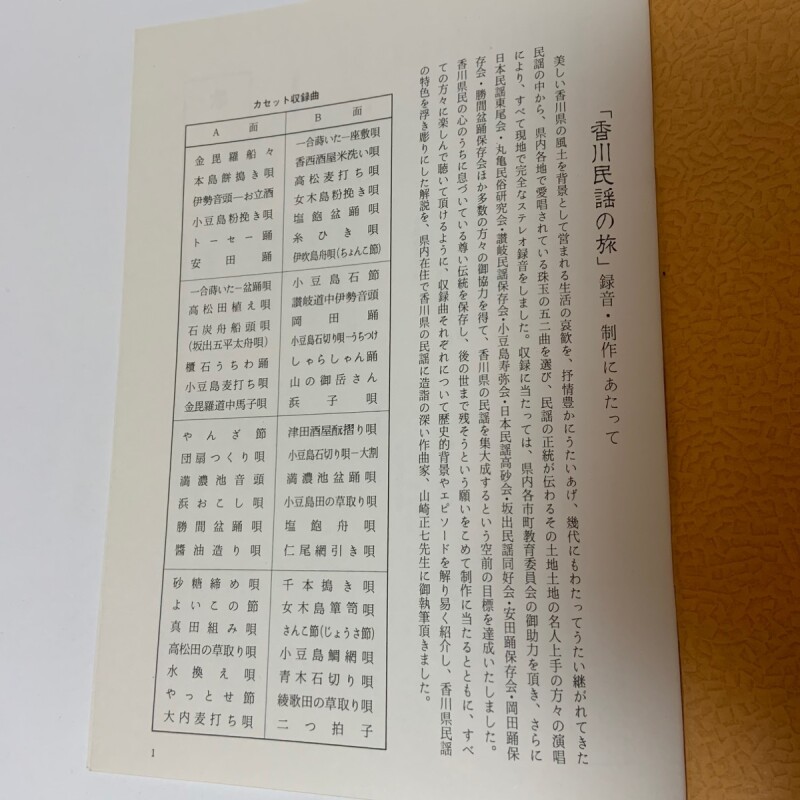 「香川民謡の旅」録音・制作にあたって
美しい香川県の風土を背景として営まれる生活の哀歓を、抒情豊かにうたいあげ、幾代にもわたってうたい継がれてきた
民謡の中から、県内各地で愛唱されている珠玉の五二曲を選び、民謡の正統が伝わるその土地土地の名人上手の方々の演唱
により、すべて現地で完全なステレオ録音をしました。収録に当たっては、県内各市町教育委員会の御助力を頂き、さらに
日本民謡東尾会・丸亀民俗研究会・讃岐民謡保存会・小豆島寿弥会・日本民謡高砂会・坂出民謡同好会・安田踊保存会・岡田踊保
存会・勝間盆踊保存会ほか多数の方々の御協力を得て、香川県の民謡を集大成するという空前の目標を達成いたしました。
香川県民の心のうちに息づいている尊い伝統を保存し、後の世まで残そうという願いをこめて制作に当たるとともに、すべ
ての方々に楽しんで聴いて頂けるように、収録曲それぞれについて歴史的背景やエピソードを解り易く紹介し、香川県民謡
の特色を浮き彫りにした解説を、県内在住で香川県の民謡に造詣の深い作曲家、山崎正七先生に御執筆頂きました。
カセット収録曲
A 面
金毘羅船々
本島餅搗き唄
伊勢音頭―お立酒
小豆島粉挽き唄
トーセー踊
安田踊
一合蒔いた―盆踊唄
高松田植え唄
石炭舟船頭唄
(坂出五平太舟唄)
櫃石うちわ踊
小豆島麦打ち唄
金毘羅道中馬子唄
やんざ節
団扇つくり唄
満濃池音頭
浜おこし唄
勝間盆踊唄
醬油造り唄
砂糖締め唄
よいこの節
真田組み唄
高松田の草取り唄
水換え唄
やっとせ節
大内麦打ち唄
B 面
一合蒔いた―座敷唄
香西酒屋米洗い唄
高松麦打ち唄
女木島粉挽き唄
塩飽盆踊唄
糸ひき唄
伊吹島舟唄(ちょんこ節)
小豆島石節
讃岐道中伊勢音頭
岡田踊
小豆島石切り唄―うちつけ
しゃらしゃん踊
山の御岳さん
浜子唄
津田酒屋酛摺り唄
小豆島石切り唄―大割
満濃池盆踊唄
小豆島田の草取り唄
塩飽舟唄
仁尾網引き唄
千本搗き唄
女木島簞笥唄
さんこ節(じょうさ節)
小豆島鯛網唄
青木石切り唄
綾歌田の草取り唄
二つ拍子
1